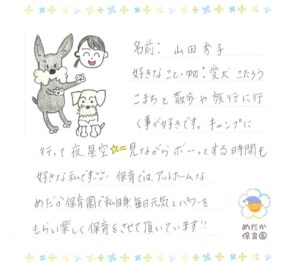 名前: 山田 秀子
好きなこと・物: 愛犬 こたろう
こまちと散歩や旅行に行
く事が好きです。キャンプに
行って夜星空☆見ながらボーッとする時間も
好きな私です♡ 保育ではアットホームな
めだか保育園で私自身、毎日元気とパワーを
もらい楽しく保育をさせて頂いています!!
めだか
保育園